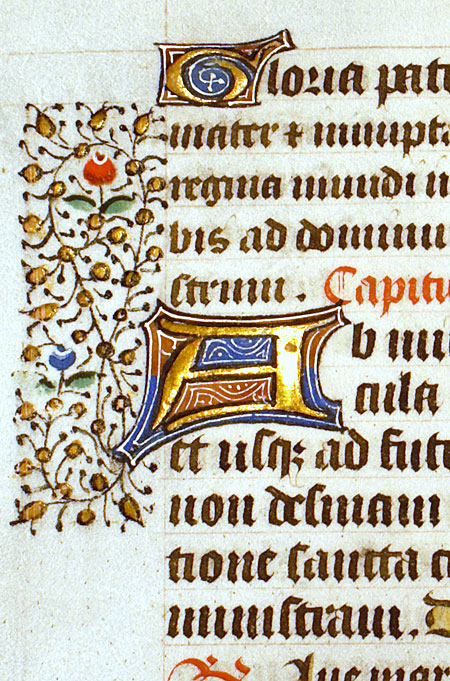 Gloria pat
mater & innupta
regina mundi
bis ad dominu
strum. Capitu
Ab ini
cula
et usq; ad futu
non desinam
tione sancta
ministraui.
Aue mar